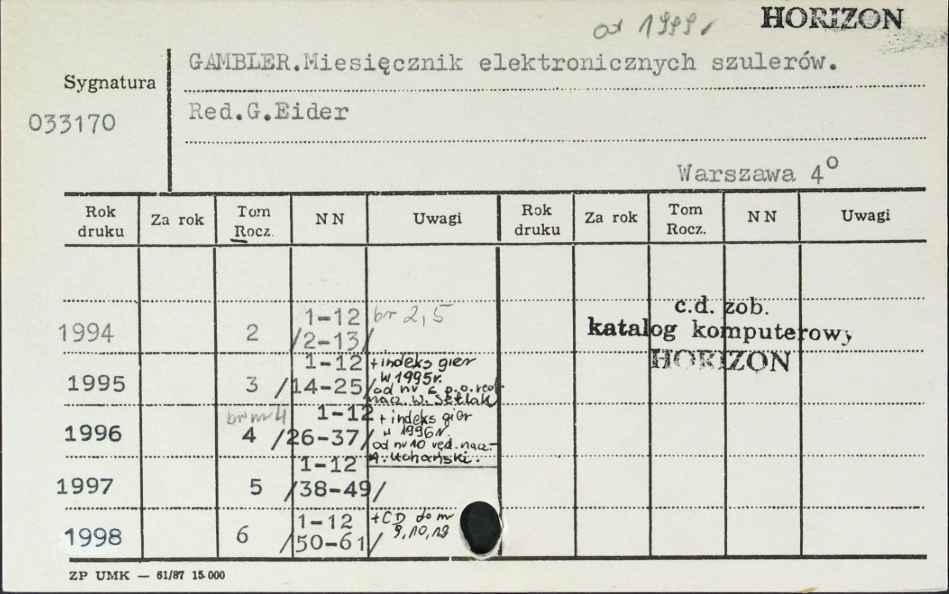 od 1999r HORIZON
GAMBLER.Miesięcznik elektronicznych szulerów.
Sygnatura
033170
Red.G.Eider
Warszawa 4º
Rok druku Za rok Tom Rocz. NN Uwagi Rok druku Za rok Tom Rocz. NN Uwagi
1994 2 1-12 /2-13/ br 2,5
c.d. zob.
katalog komputerowy
HORIZON
1995 3 1-12 /14-25/ +indeks gier
w 1995r.
od nr 6 p.o. red.
nacz. W. Setlak
br nr 4
1996 4 1-12 /26-37/ + indeks gier
w 1996r.
od nr 10 red. nacz.
A. Uchański.
1997 5 1-12 /38-49/
1998 6 1-12 /50-61/ +CD do nr
9,10,12
ZP UMK — 61/87 15.000